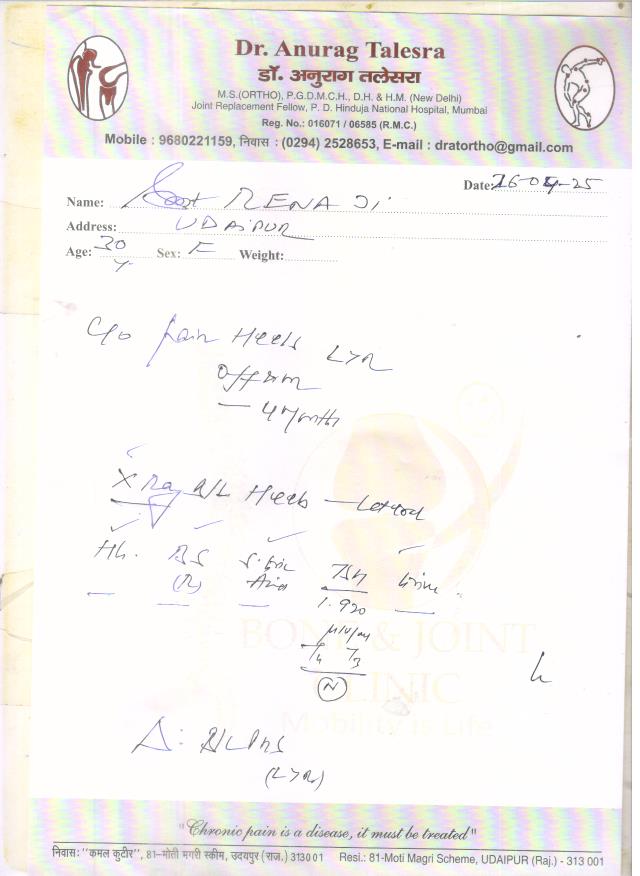 Dr. Anurag Talesra
डॉ. अनुराग तलेसरा
M.S.(ORTHO), P.G.D.M.C.H., D.H. & H.M. (New Delhi)
Joint Replacement Fellow, P. D. Hinduja National Hospital, Mumbai
Reg. No.: 016071 / 06585 (R.M.C.)
Mobile : 9680221159, निवास : (0294) 2528653, E-mail : dratortho@gmail.com
Date: -25
Name: RENA Ji
Address: UDAIPUR
Age: 30 Y Sex: F Weight:
C/o Pain Heels L>R
Off & on
- 4 Month
X Ray B/L Heels - Lateral
Hb. BS (R) S. Uric Acid TSH Urine
1.920
T4 T3
(N)
BONE & JOINT
CLINIC
Mobility is Life
Δ: B/L
(L>R)
"Chronic pain is a disease, it must be treated"
निवास: "कमल कुटीर", 81-मोती मगरी स्कीम, उदयपुर (राज.) 313001 Resi.: 81-Moti Magri Scheme, UDAIPUR (Raj.) - 313 001